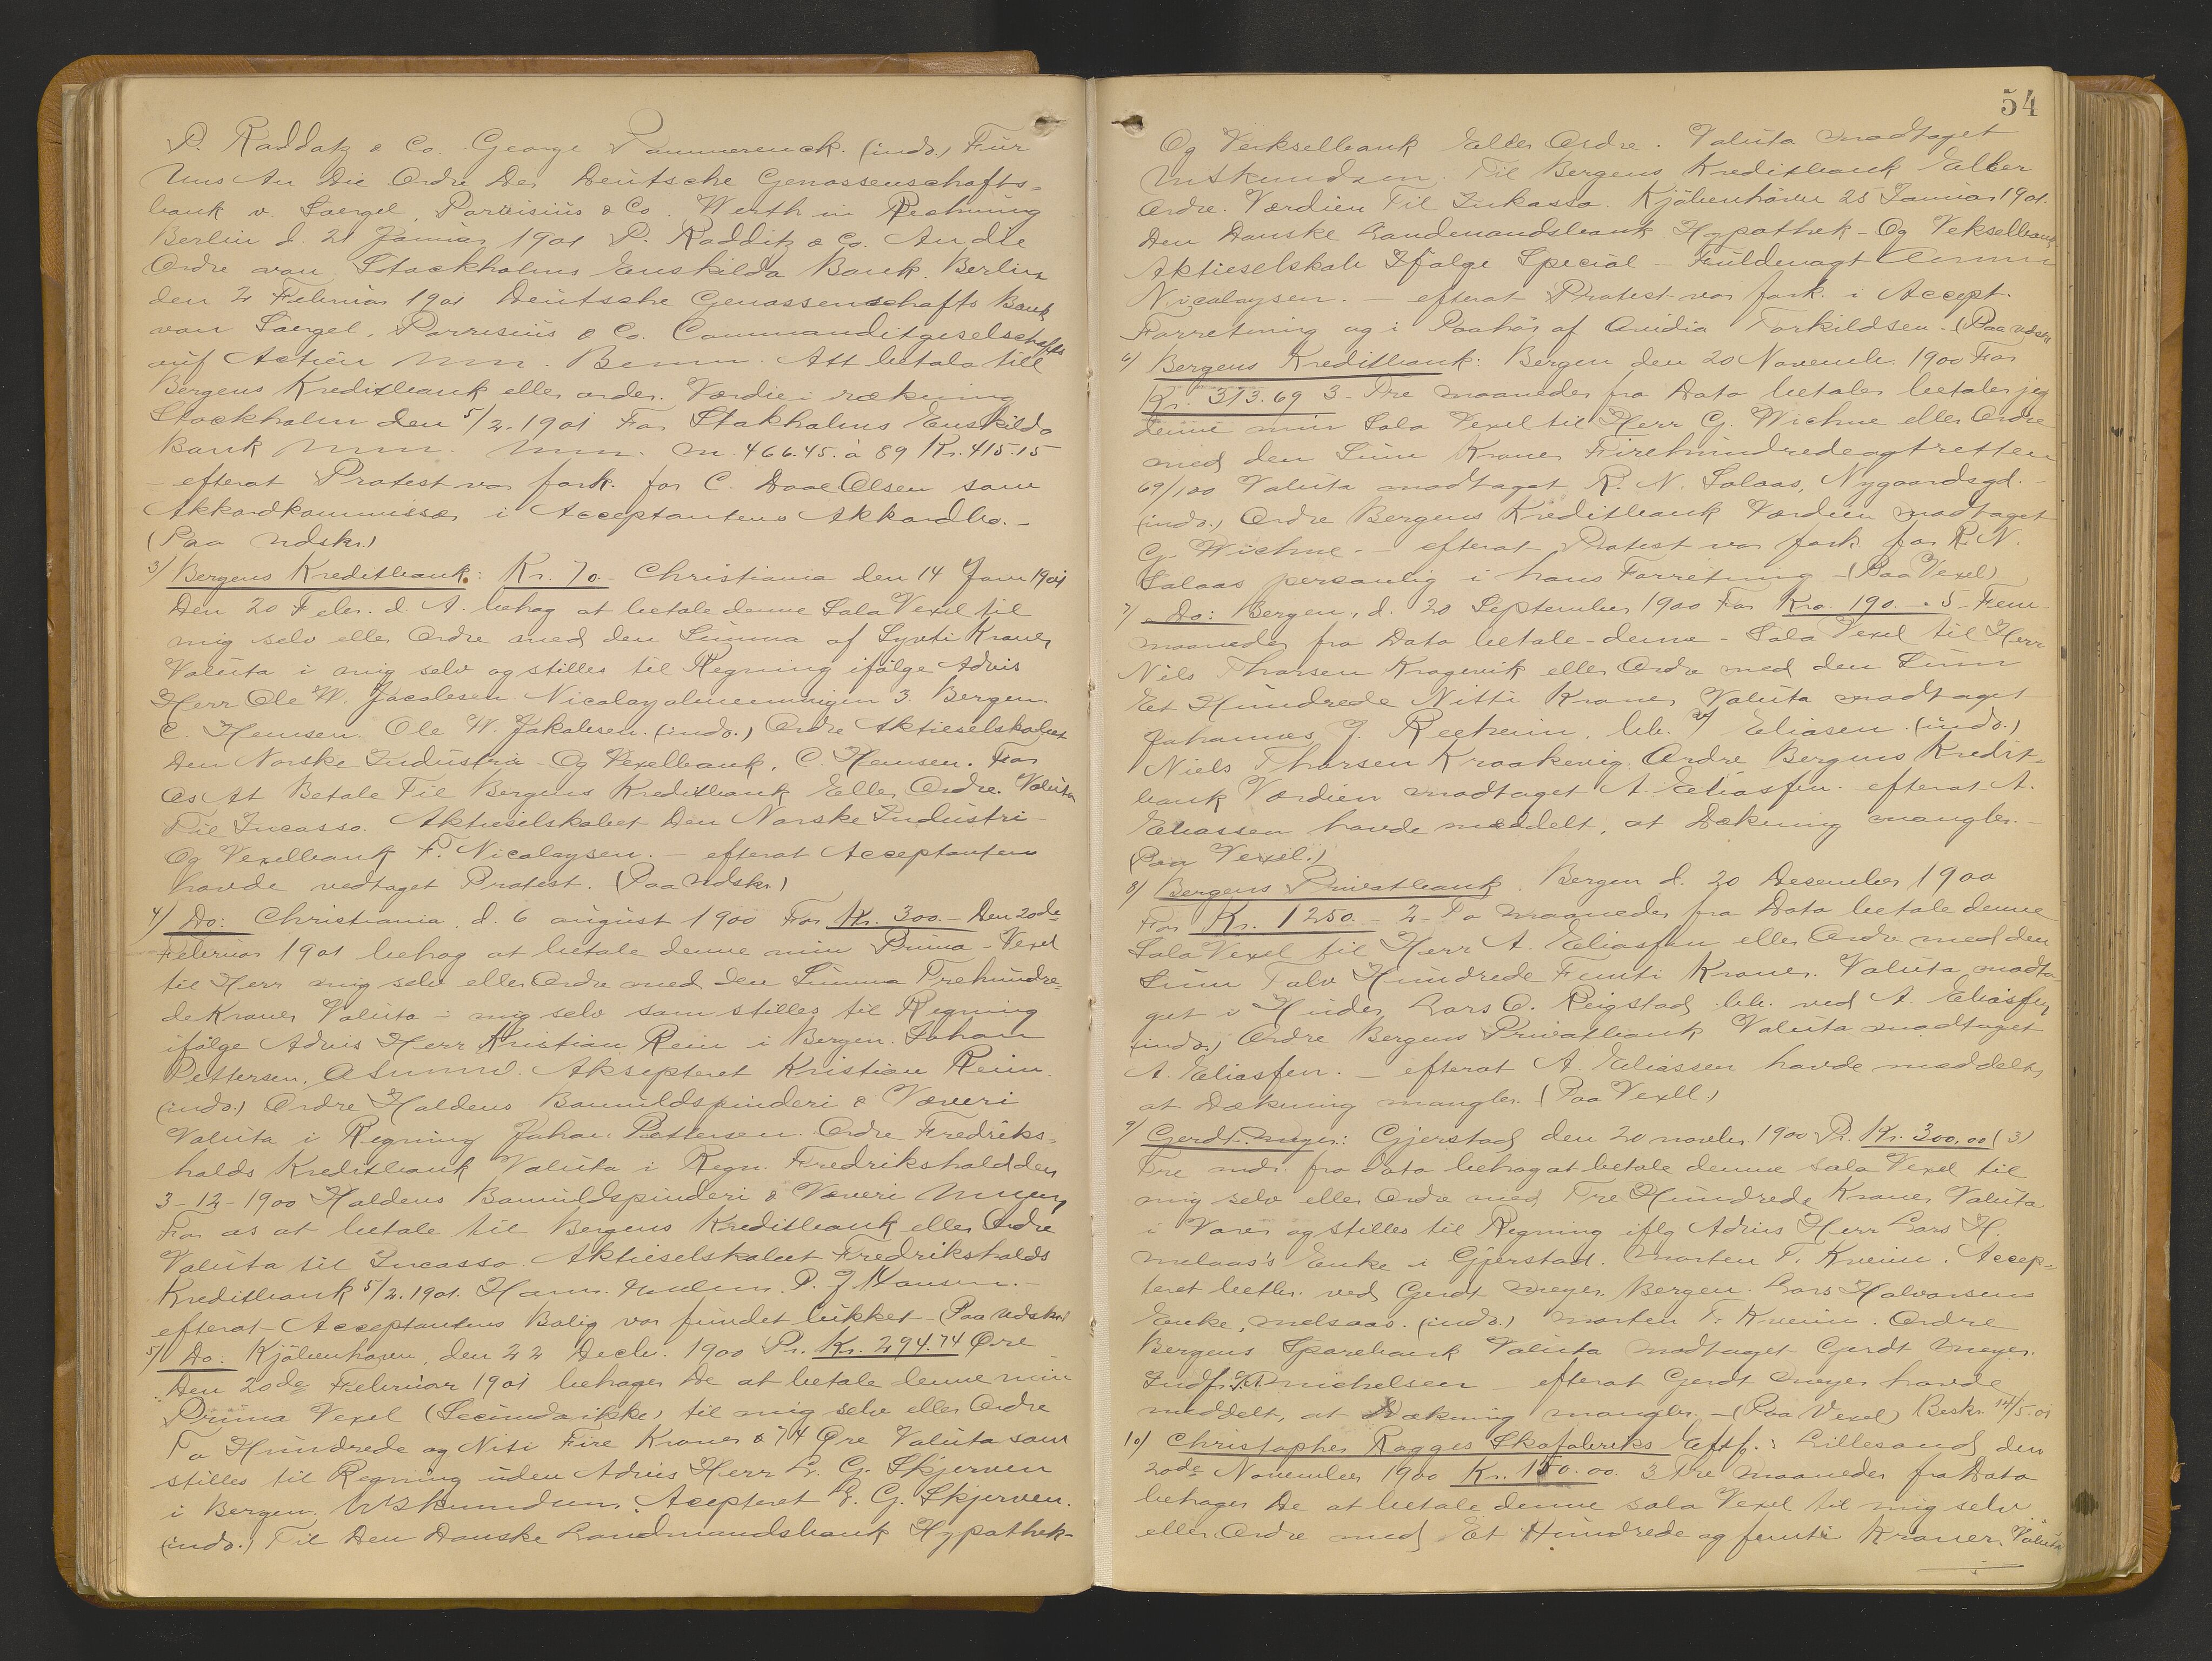 P. Raddatz & Co. George Pammerenck. (indo.) Für
Uns An Die Ordre Der Deutsche Genossenschafts-
bank v. Soergel, Parrisius & Co. Werth in Rechnung
Berlin d. 21 Januar 1901 P. Radditz & Co. An die
Ordre von Stockholms Enskilda Bank. Berlin
den 2 Februar 1901 Deutsche Genossenschafts Bank
von Soergel, Parrisius & Co. Commanditgeselschafts
auf Actien Att betala till
Bergens Kreditbank eller order. Værdie i räkning
Stockholm den 5/2.1901 For Stokholms Enskilda
Bank m 466.45. à 89 Kr. 415.15
- efterat Protest var fork. for C. Daae Olsen som
Akkordkommissær i Acceptantens Akkordbo. -
(Paa Udskr.)
3) Bergens Kreditbank: Kr. 70. - Christiania den 14 Janr 1901
Den 20 Febr. d. A. behag at betale denne Sola Vexel til
mig selv eller Ordre med den Summa af Sytti Kroner
Valuta i mig selv og stilles til Regning ifölge Advis
Herr Ole W. Jacobsen Nicolayalmenningen 3 Bergen.
C. Hemsen. Ole W. Jakobsen. (indo.) Ordre Aktieselskabet
Den Norske Industri- Og Vexelbank, C. Hemsen. For
Os At Betale Til Bergens Kreditbank Eller Ordre. Valuta
Til Incasso. Aktieselskabet Den Norske Industri-
Og Vexelbank F. Nicolaysen. - efterat Acceptanten
havde vedtaget Protest. (Paa Udskr.)
4) Do: Christiania d. 6 august 1900 For Kr. 300. - Den 20de
Februar 1901 behag at betale denne min Prima-Vexel
til Herr mig selv eller Ordre med den Summa Trehundre-
de Kroner Valuta i mig selv som stilles til Regning
ifölge Advis Herr Kristian Reim i Bergen. Johan
Pettersen, Aksepteret Kristian Reim.
(indo.) Ordre Haldens Bomuldspinderi & Væveri
Valuta i Regning Johan Pettersen. Ordre Fredriks-
halds Kreditbank Valuta i Regn. Fredrikshald den
3-12-1900 Haldens Bomuldspinderi & Væveri
For os at betale til Bergens Kreditbank eller Ordre
Valuta til Incasso. Aktieselskabet Fredrikshalds
Kreditbank 5/2.1901. P. J. Hansen. -
efterat Acceptantens Bolig var fundet lukket - (Paa Udskr.)
5) Do: Kjöbenhavn, den 22 Decbr. 1900 Pr. Kr. 294.74 Øre -
Den 20de Februar 1901 behager De at betale denne min
Prima Vexel (Secunda ikke) til mig selv eller Ordre
To Hundrede og Niti Fire Kroner & 74 Øre Valuta som
stilles til Regning uden Advis Herr L. G. Skjerven
i Bergen. Acepteret L. G. Skjerven.
(indo.) Til Den Danske Landmandsbank Hypothek-
54
Og Vekselbank Eller Ordre. Valuta modtaget
Til Bergens Kreditbank Eller
Ordre. Værdien Til Inkasso. Kjöbenhavn 25 Januar 1901.
Den Danske Landmandsbank Hypothek- Og Vekselbank
Aktieselskab Ifølge Special - Fuldmagt
Nicolaysen. - efterat Protest var fork. i Accept.
Forretning og i Paahör af Ovidia Torkildsen - (Paa Udskr.)
6) Bergens Kreditbank: Bergen den 20 Novembr. 1900 For
Kr. 313.69 3 - Tre maaneder fra Dato betaler betaler jeg
denne min Sola Vexel til Herr G. Wichne eller Ordre
med den Sum Kroner Firehundredeogtretten
69/100 Valuta modtaget R. N. Solaas, Nygaardsgd. -
(indo.) Ordre Bergens Kreditbank Værdien modtaget
G. Wichne. - efterat Protest var fork. for R. N.
Solaas personlig i hans Forretning - (Paa Vexel)
7) Do: Bergen, d. 20 September 1900 For Kro. 190. - 5 - Fem-
maaneder fra Dato betale - denne - Sola Vexel til Herr
Nils Thorsen Kragevik eller Ordre med den Sum
Et Hundrede Nitti Kroner Valuta modtaget
Johannes J. Reeheim, bb. af Eliasen. (indo.)
Niels Thorsen Kraakevig. Ordre Bergens Kredit-
bank Værdien modtaget A. Eliasfen. efterat A.
Eliassen havde meddelt, at Dækning mangler. -
(Paa Vexel.)
8) Bergens Privatbank. Bergen d. 20 Desember 1900
For Kr. 1250. - 2 - To maaneder fra Dato betale denne
Sola Vexel til Herr A. Eliasfen eller Ordre med den
Sum Tolv Hundrede Femti Kroner. Valuta modta-
get i Huder Lars O. Reigstad bb. ved A. Eliasfen
(indo.) Ordre Bergens Privatbank Valuta modtaget
A. Eliasfen. - efterat A. Eliassen havde meddelt,
at Dækning mangler. (Paa Vexll.)
9) Gerdt Meyer: Gjerstad den 20 novbr. 1900 Pr. Kr. 300,00 (3)
Tre mdr. fra Dato behag at betale denne sola Vexel til
mig selv eller Ordre med Tre Hundrede Kroner Valuta
i Varer og stilles til Regning iflg Advis Herr Lars H.
Melaas's Enke i Gjerstad. Morten T. Kveim. Accep-
teret betbr. ved Gerdt Meyer, Bergen. Lars Halvorsens
Enke, Melsaas. (indo.) Morten T. Kveim. Ordre
Bergens Sparebank Valuta modtaget Gerdt Meyer.
Indf. Michelsen - efterat Gerdt Meyer havde
meddelt, at Dækning mangler. - (Paa Vexel) Beskr. 14/5.01
10) Christopher Ragges Skofabriks Eftf.: Lillesand den
20de November 1900 Kr. 150.00. 3 Tre maaneder fra Dato
behager De at betale denne sola Vexel til mig selv
eller Ordre med Et Hundrede og femti Kroner. Valuta